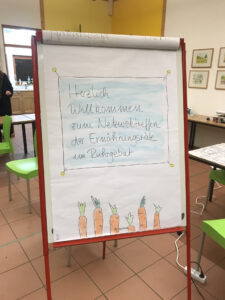 Herzlich
Willkommen
zum Netzwerktreffen
der Ernährungsräte
im Ruhrgebiet